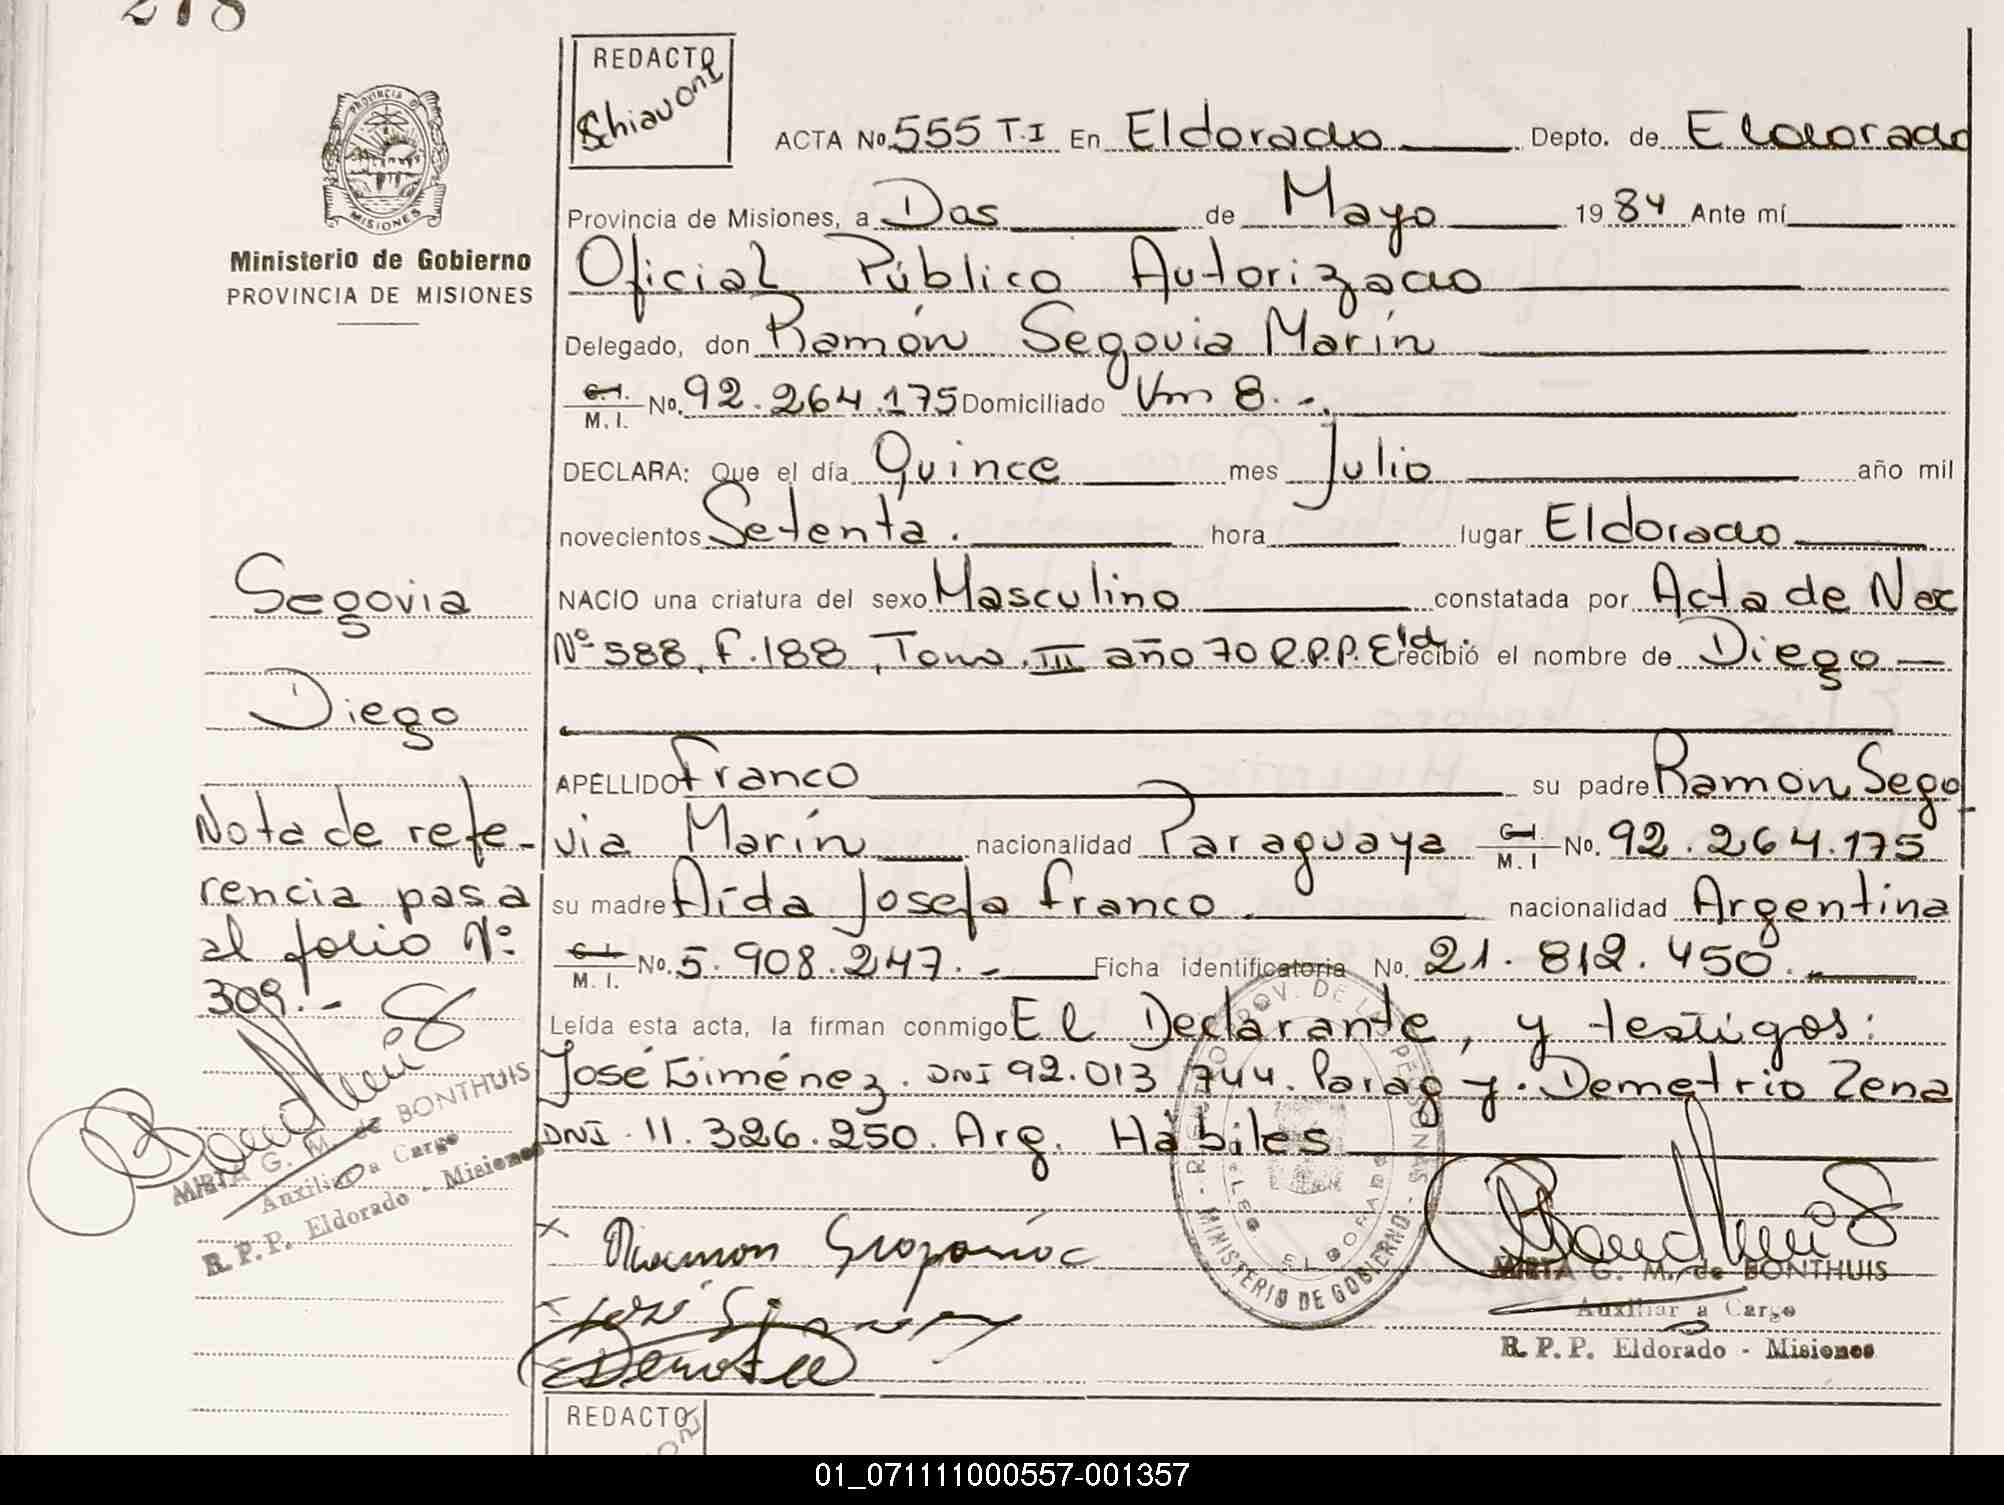 278
REDACTO
Schiavoni
PROVINCIA D
MISIONES
Ministerio de Gobierno
PROVINCIA DE MISIONES
ACTA No. 555 T.I En Eldorado Depto. de Eldorado
Provincia de Misiones, a Dos de Mayo 1984 Ante mí
Oficial Público Autorizado
Delegado, don Ramón Segovia Marín
C.I. M.I. No. 92.264.175 Domiciliado Km 8.-.
DECLARA: Que el día Quince mes Julio año mil
novecientos Setenta. hora lugar Eldorado
NACIO una criatura del sexo Masculino constatada por Acta de Nac
Nº 588, F.188, Tomo III año 70 R.P.P. Eld. recibió el nombre de Diego
APELLIDO Franco su padre Ramón Sego
via Marín nacionalidad Paraguaya C.I. M.I No. 92.264.175
su madre Aída Josefa Franco. nacionalidad Argentina
C.I. M.I. No. 5.908.247.- Ficha identificatoria No. 21.812.450.
Leída esta acta, la firman conmigo El Declarante, y testigos:
José Giménez. DNI 92.013.744. Parag y. Demetrio Zena
DNI. 11.326.250. Arg. Hábiles
Segovia
Diego
Nota de refe-
rencia pasa
al folio Nº
309.-
MIRTA G. M. de BONTHUIS
Auxiliar a Cargo
R.P.P. Eldorado - Misiones
MINISTERIO DE GOBIERNO
ELDORADO
MIRTA G. M. de BONTHUIS
Auxiliar a Cargo
R. P. P. Eldorado - Misiones
REDACTO
01_071111000557-001357